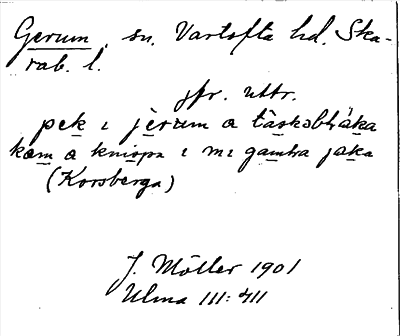 Gerum, sn. Vartofta hd. Ska-
rab. l.
jfr. uttr.
pek ı jèrum a
kam a knıspa ı mı gamhra jaka
(Korsberga)
J. Möller 1901
Ulma 111:411